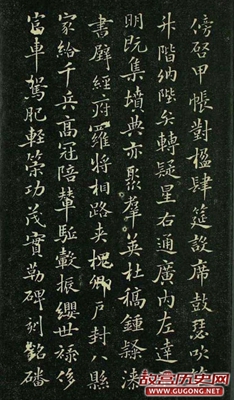 傍啓甲帳對楹肆筵設席鼓瑟吹笙
升階納陛弁轉疑星右通廣内左達
明既集墳典亦聚羣英杜稿鍾隸漆
書壁經府羅將相路夾槐卿戶封八縣
家給千兵高冠陪輦驅轂振纓世祿侈
富車駕肥輕策功茂實勒碑刻銘磻
故宫历史网